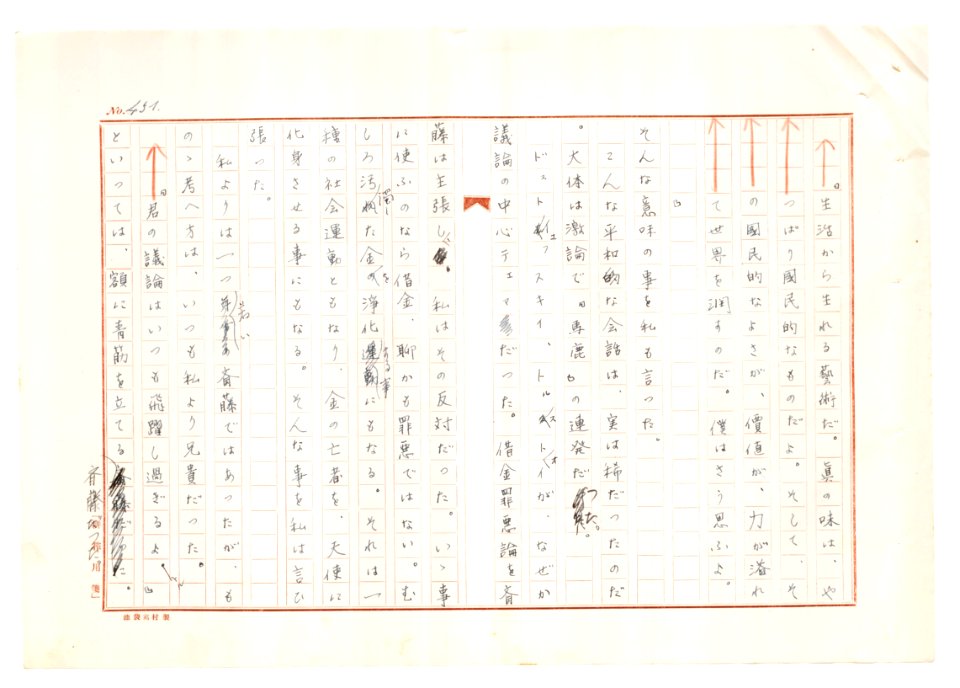 No. 451.
「生活から生れる藝術だ。眞の味は、や
つぱり國民的なものだよ。そして、そ
の國民的なよさが、價値が、力が溢れ
て世界を潤すのだ。僕はさう思ふよ。
」
そんな意味の事を私も言つた。
こんな平和的な会話は、実は稀だつたのだ
。大体は激論で「馬鹿」の連発だつた。
ドストイェフスキイ、トルストイが、なぜか
議論の中心テェマだつた。借金罪悪論を斎
藤は主張し、私はその反対だつた。いゝ事
に使ふのなら借金、聊かも罪悪ではない。む
しろ汚濁した金を浄化する事にもなる。それは一
種の社会運動ともなり、金の亡者を、天使に
化身させる事にもなる。そんな事を私は言ひ
張つた。
私よりは一つ若い斎藤ではあつたが、も
のゝ考へ方は、いつも私より兄貴だつた。
「君の議論はいつも飛躍し過ぎるよ。」
といつては、額に青筋を立てる斎藤だつた。
用箋」